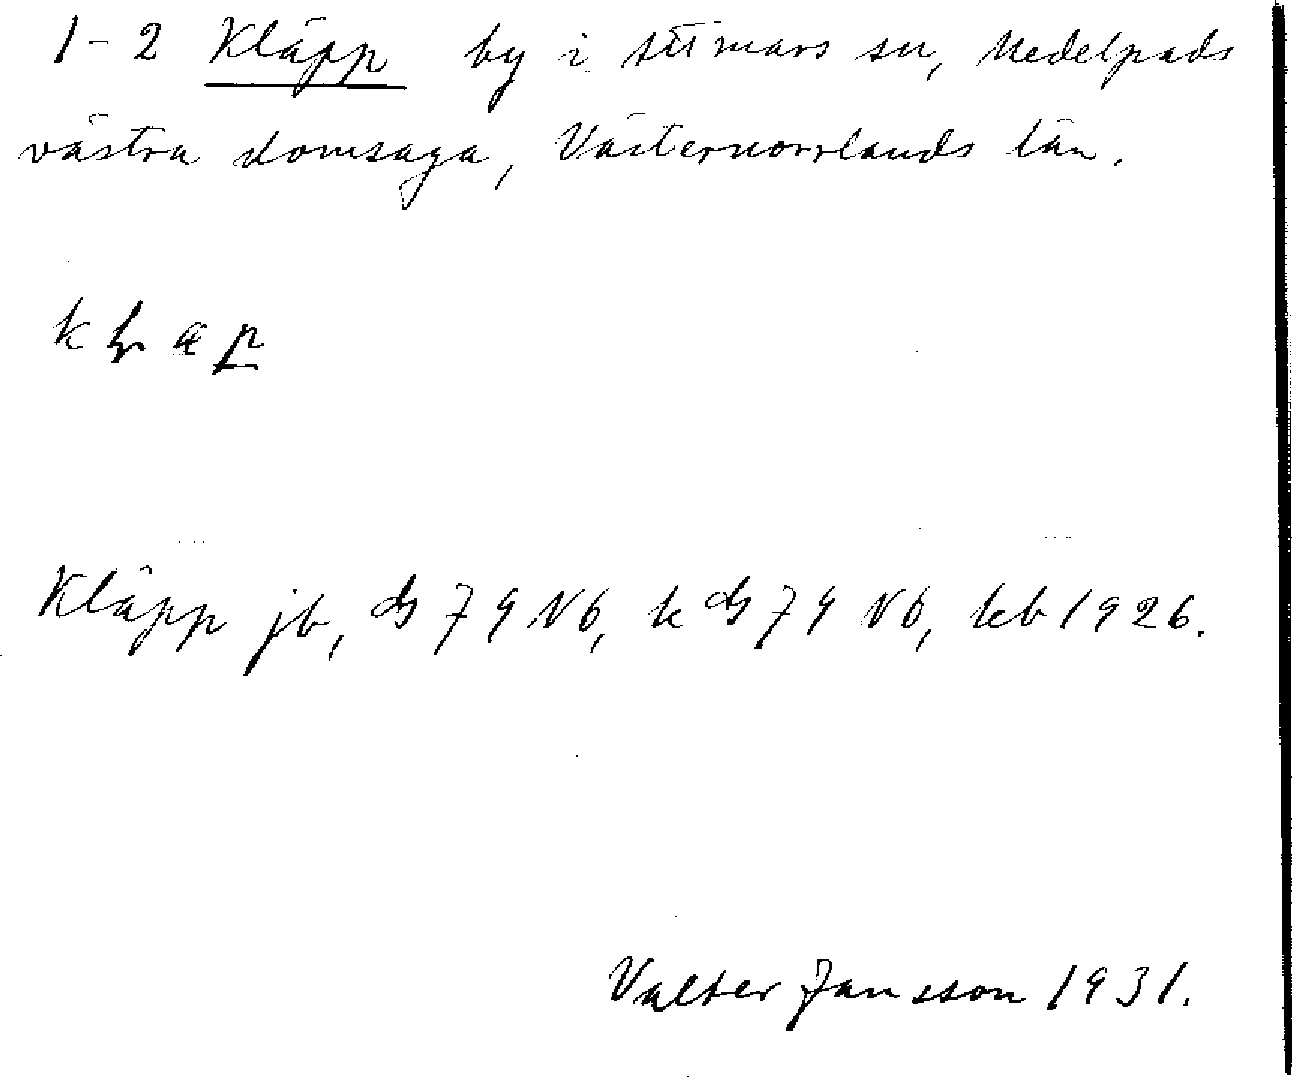 1-2 Kläpp by i Attmars sn, Medelpads
västra domsaga, Västernorrlands län.
Kläpp jb, ds 79 NO, k ds 79 NO, kb 1926.
Valter Jansson 1931.